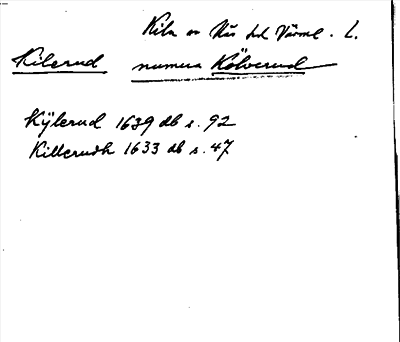 Kila sn Näs hd Värml. L.
Kilerud numera Kölverud
Kÿlerud 1639 db s. 92
Killerudh 1633 db s. 47